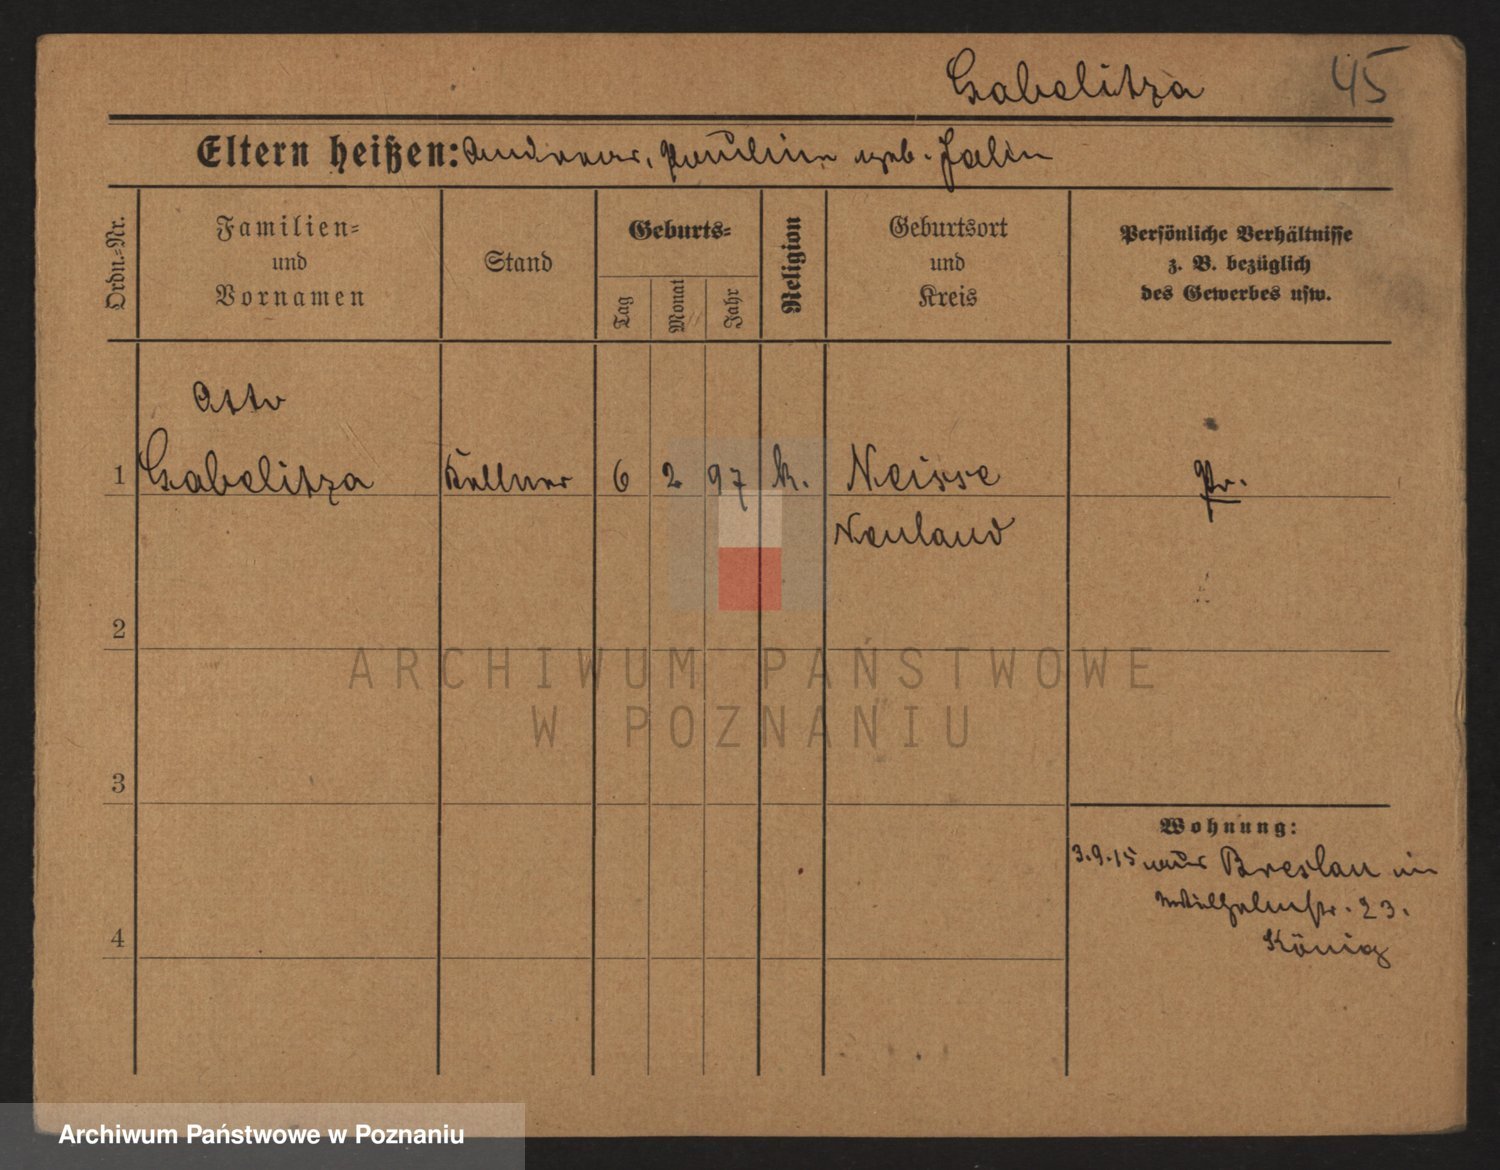 Gabelitza 45
Eltern heißen: Andreas, Pauline geb. Jalin
Ordn.=Nr.
Familien=
und
Vornamen
Stand
Geburts=
Tag
Monat
Jahr
Religion
Geburtsort
und
Kreis
Persönliche Verhältnisse
z. B. bezüglich
des Gewerbes usw.
Otto
1 Gabelitza Kellner 6 2 97 k. Neisse Pr.
Neuland
2
ARCHIWUM PAŃSTWOWE
W POZNANIU
3
Wohnung:
3.9.15 aus Breslau in
Wilhelmstr. 23.
König
4
Archiwum Państwowe w Poznaniu